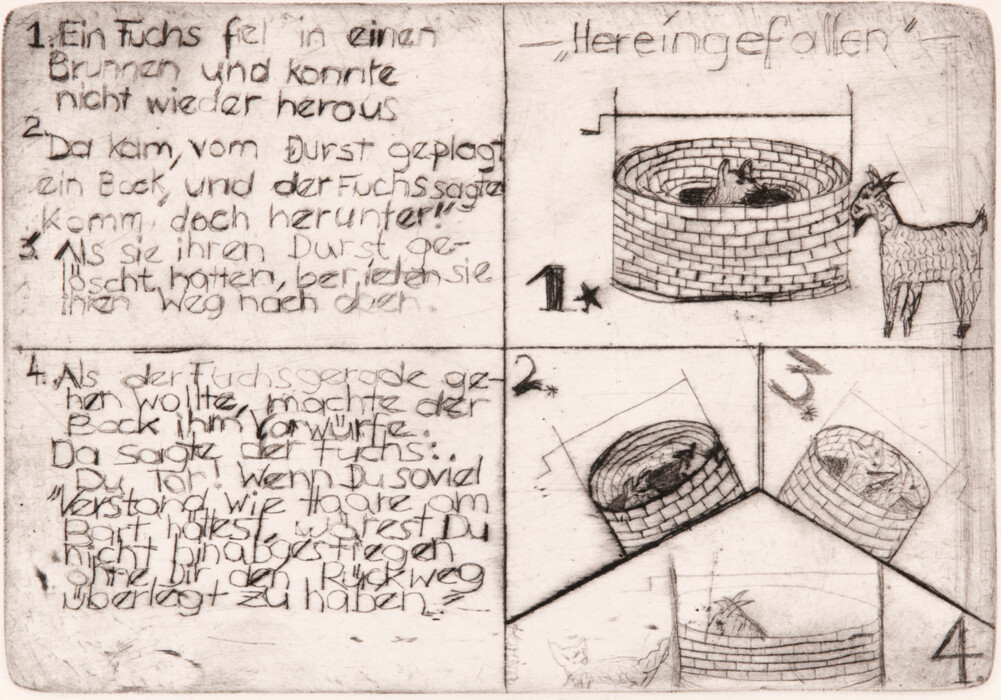 1. Ein Fuchs fiel in einen
Brunnen und konnte
nicht wieder heraus
2.
Da kam, vom Durst geplagt
ein Bock, und der Fuchs sagte
Komm doch herunter!"
3. Als sie ihren Durst ge-
löscht hatten, berieten sie
ihren Weg nach oben.
4. Als der Fuchs gerade ge-
hen wollte, machte der
Bock ihm Vorwürfe.
Da sagte der Fuchs:
"Du Tor! Wenn Du soviel
Verstand wie Haare am
Bart hättest, wärest Du
nicht hinabgestiegen
ohne Dir den Rückweg
überlegt zu haben."
—„Hereingefallen"—
1.
2.
3.
4